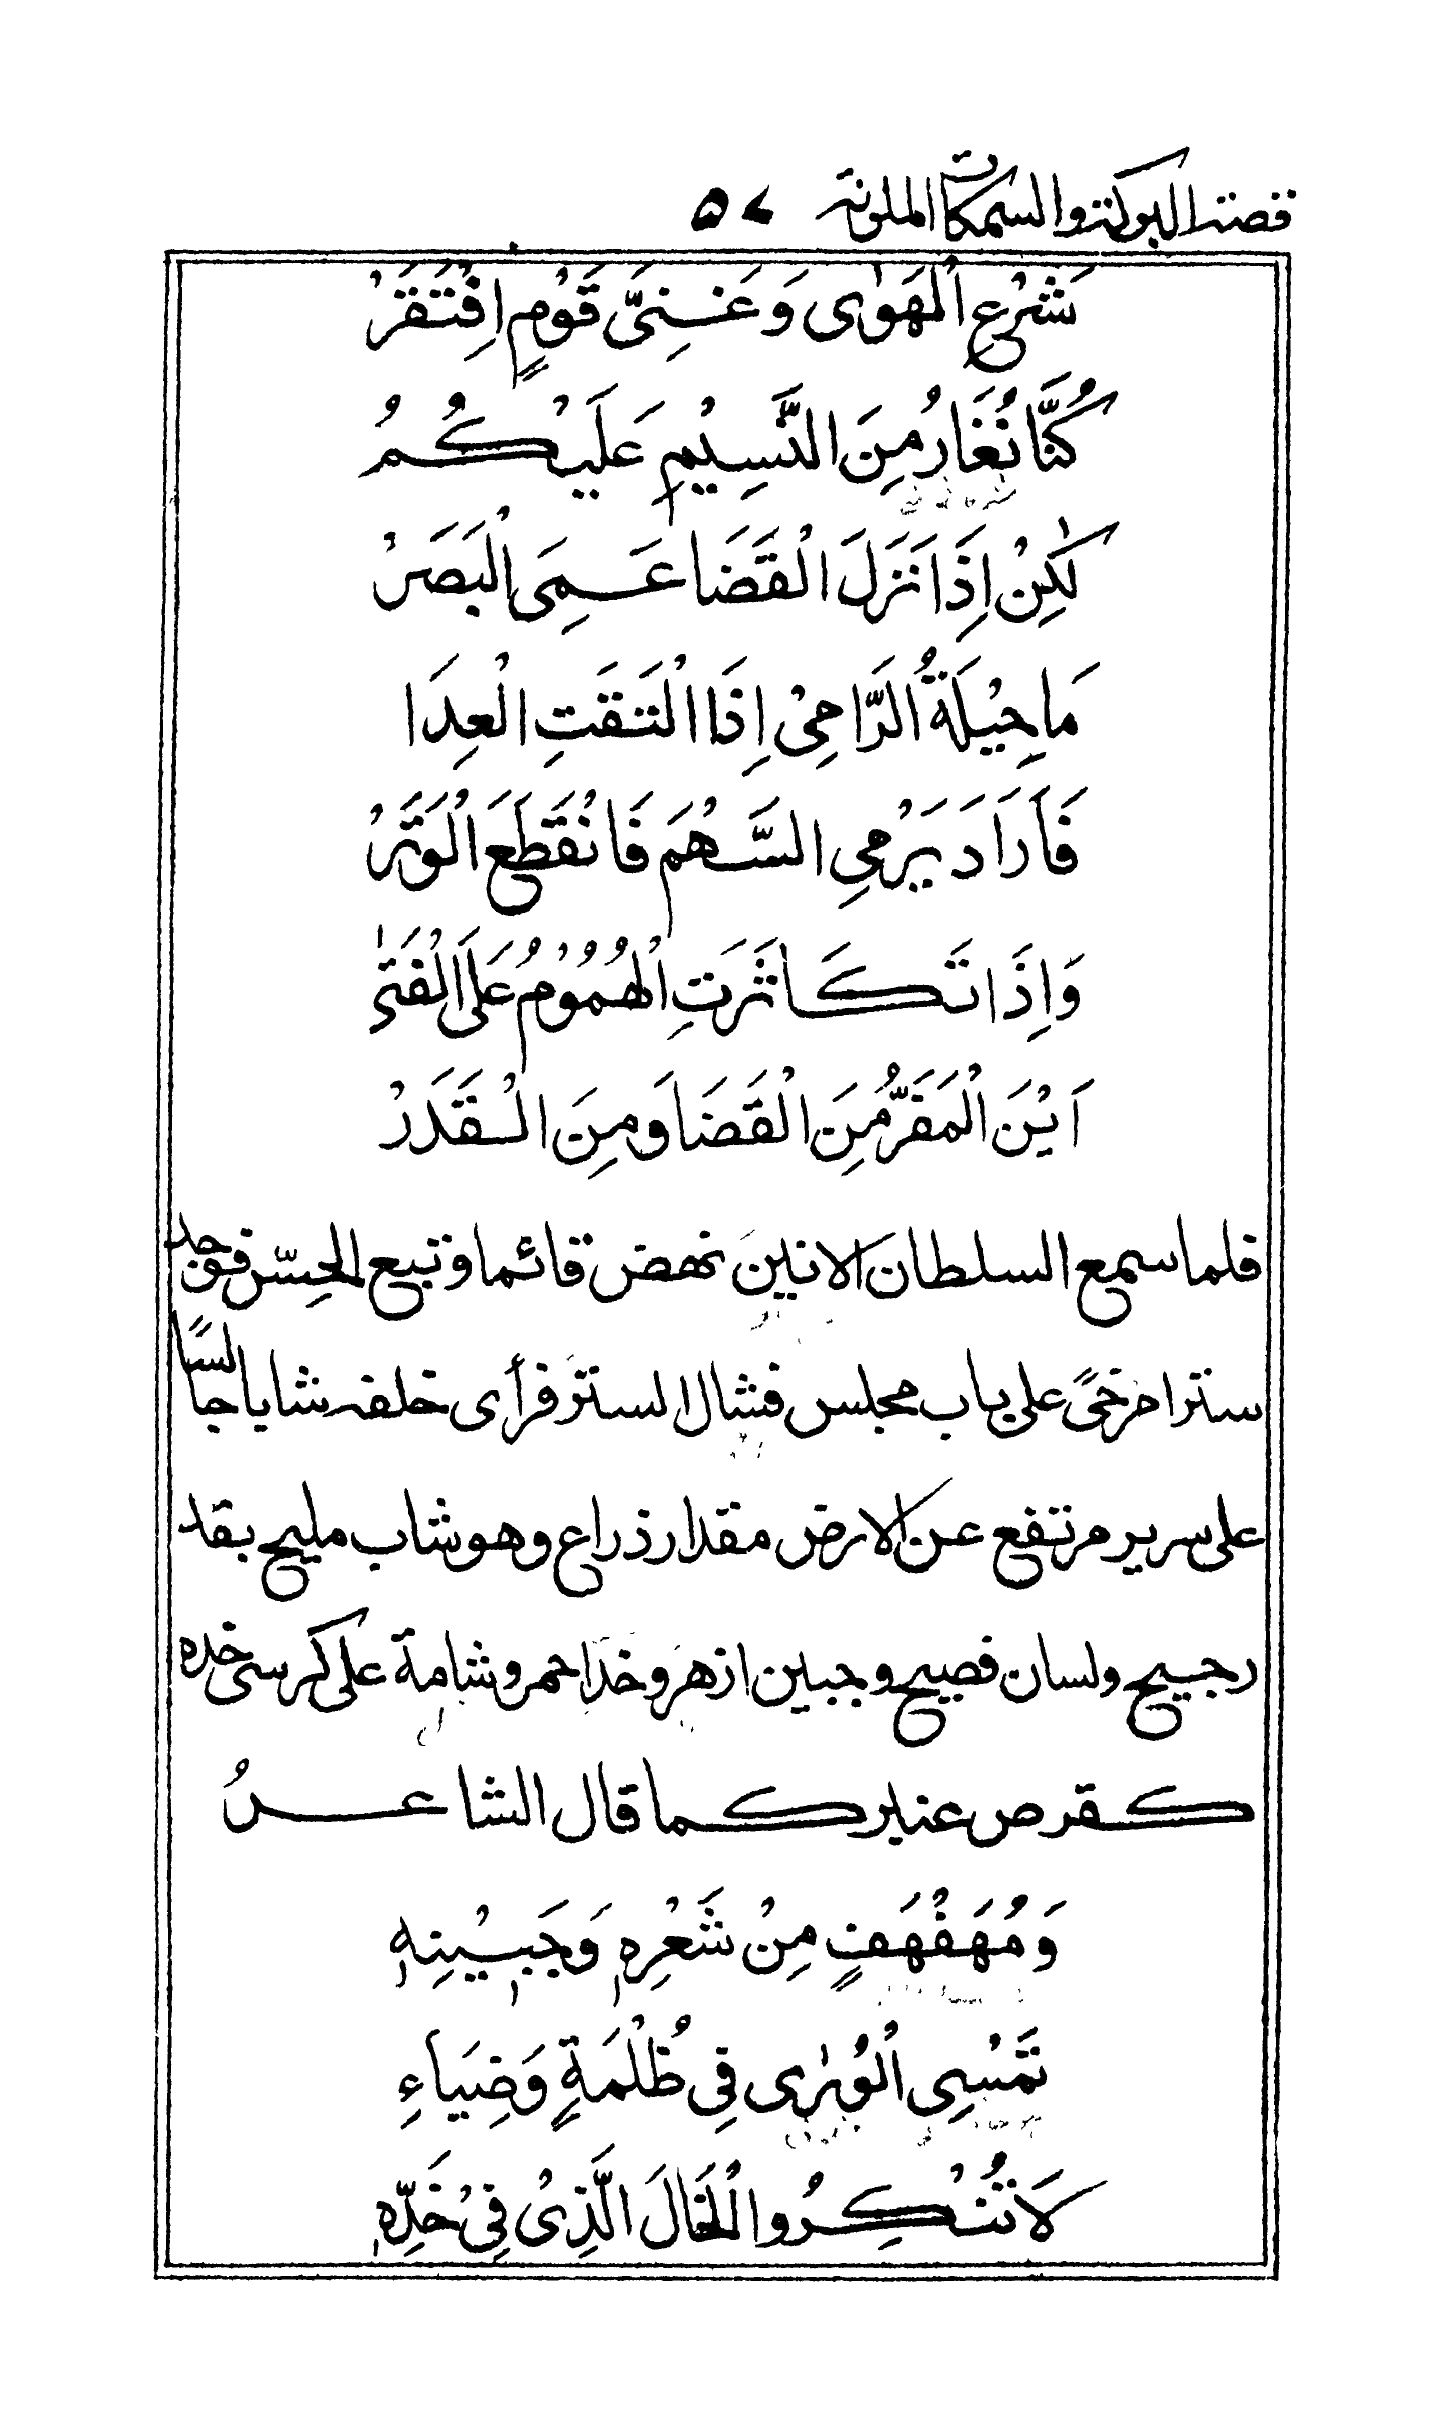 قصة البركة والسمكات الملونة ٥٧
شَرْعِ الْهَوٰى وَغَنِىَّ قَوْمٍ اِفْتَقَرْ
كُنَّا نُغَارُ مِنَ النَّسِيْمِ عَلَيْكُمُ
لٰكِنْ اِذَا نَزَلَ الْقَضَا عَمِىَ الْبَصَرْ
مَا حِيْلَةُ الرَّامِىْ اِذَا الْتَقَتِ الْعِدَا
فَاَرَادَ يَرْمِى السَّهْمَ فَانْقَطَعَ الْوَتَرْ
وَاِذَا تَكَاثَرَتِ الْهُمُوْمُ عَلَى الْفَتٰى
اَيْنَ الْمَفَرُّ مِنَ الْقَضَا وَمِنَ الْقَدَرْ
فلما سمع السلطان الانينَ نهض قائما وتبع الحِسّ فوجد
سترا مرخىً على باب مجلس فشال الستر فرأى خلفه شابا جالسًا
على سرير مرتفع عن الارض مقدار ذراع وهو شاب مليح بقد
رجيح ولسان فصيح وجبين ازهر وخد احمر وشامة على كرسى خده
كقرص عنبر كما قال الشاعرُ
وَمُهَفْهَفٍ مِنْ شَعْرِهٖ وَجَبِيْنِهٖ
تَمْسِى الْوَرٰى فِى ظُلْمَةٍ وَضِيَاءِ
لَا تُنْكِرُوا الْخَالَ الَّذِىْ فِىْ خَدِّهٖ